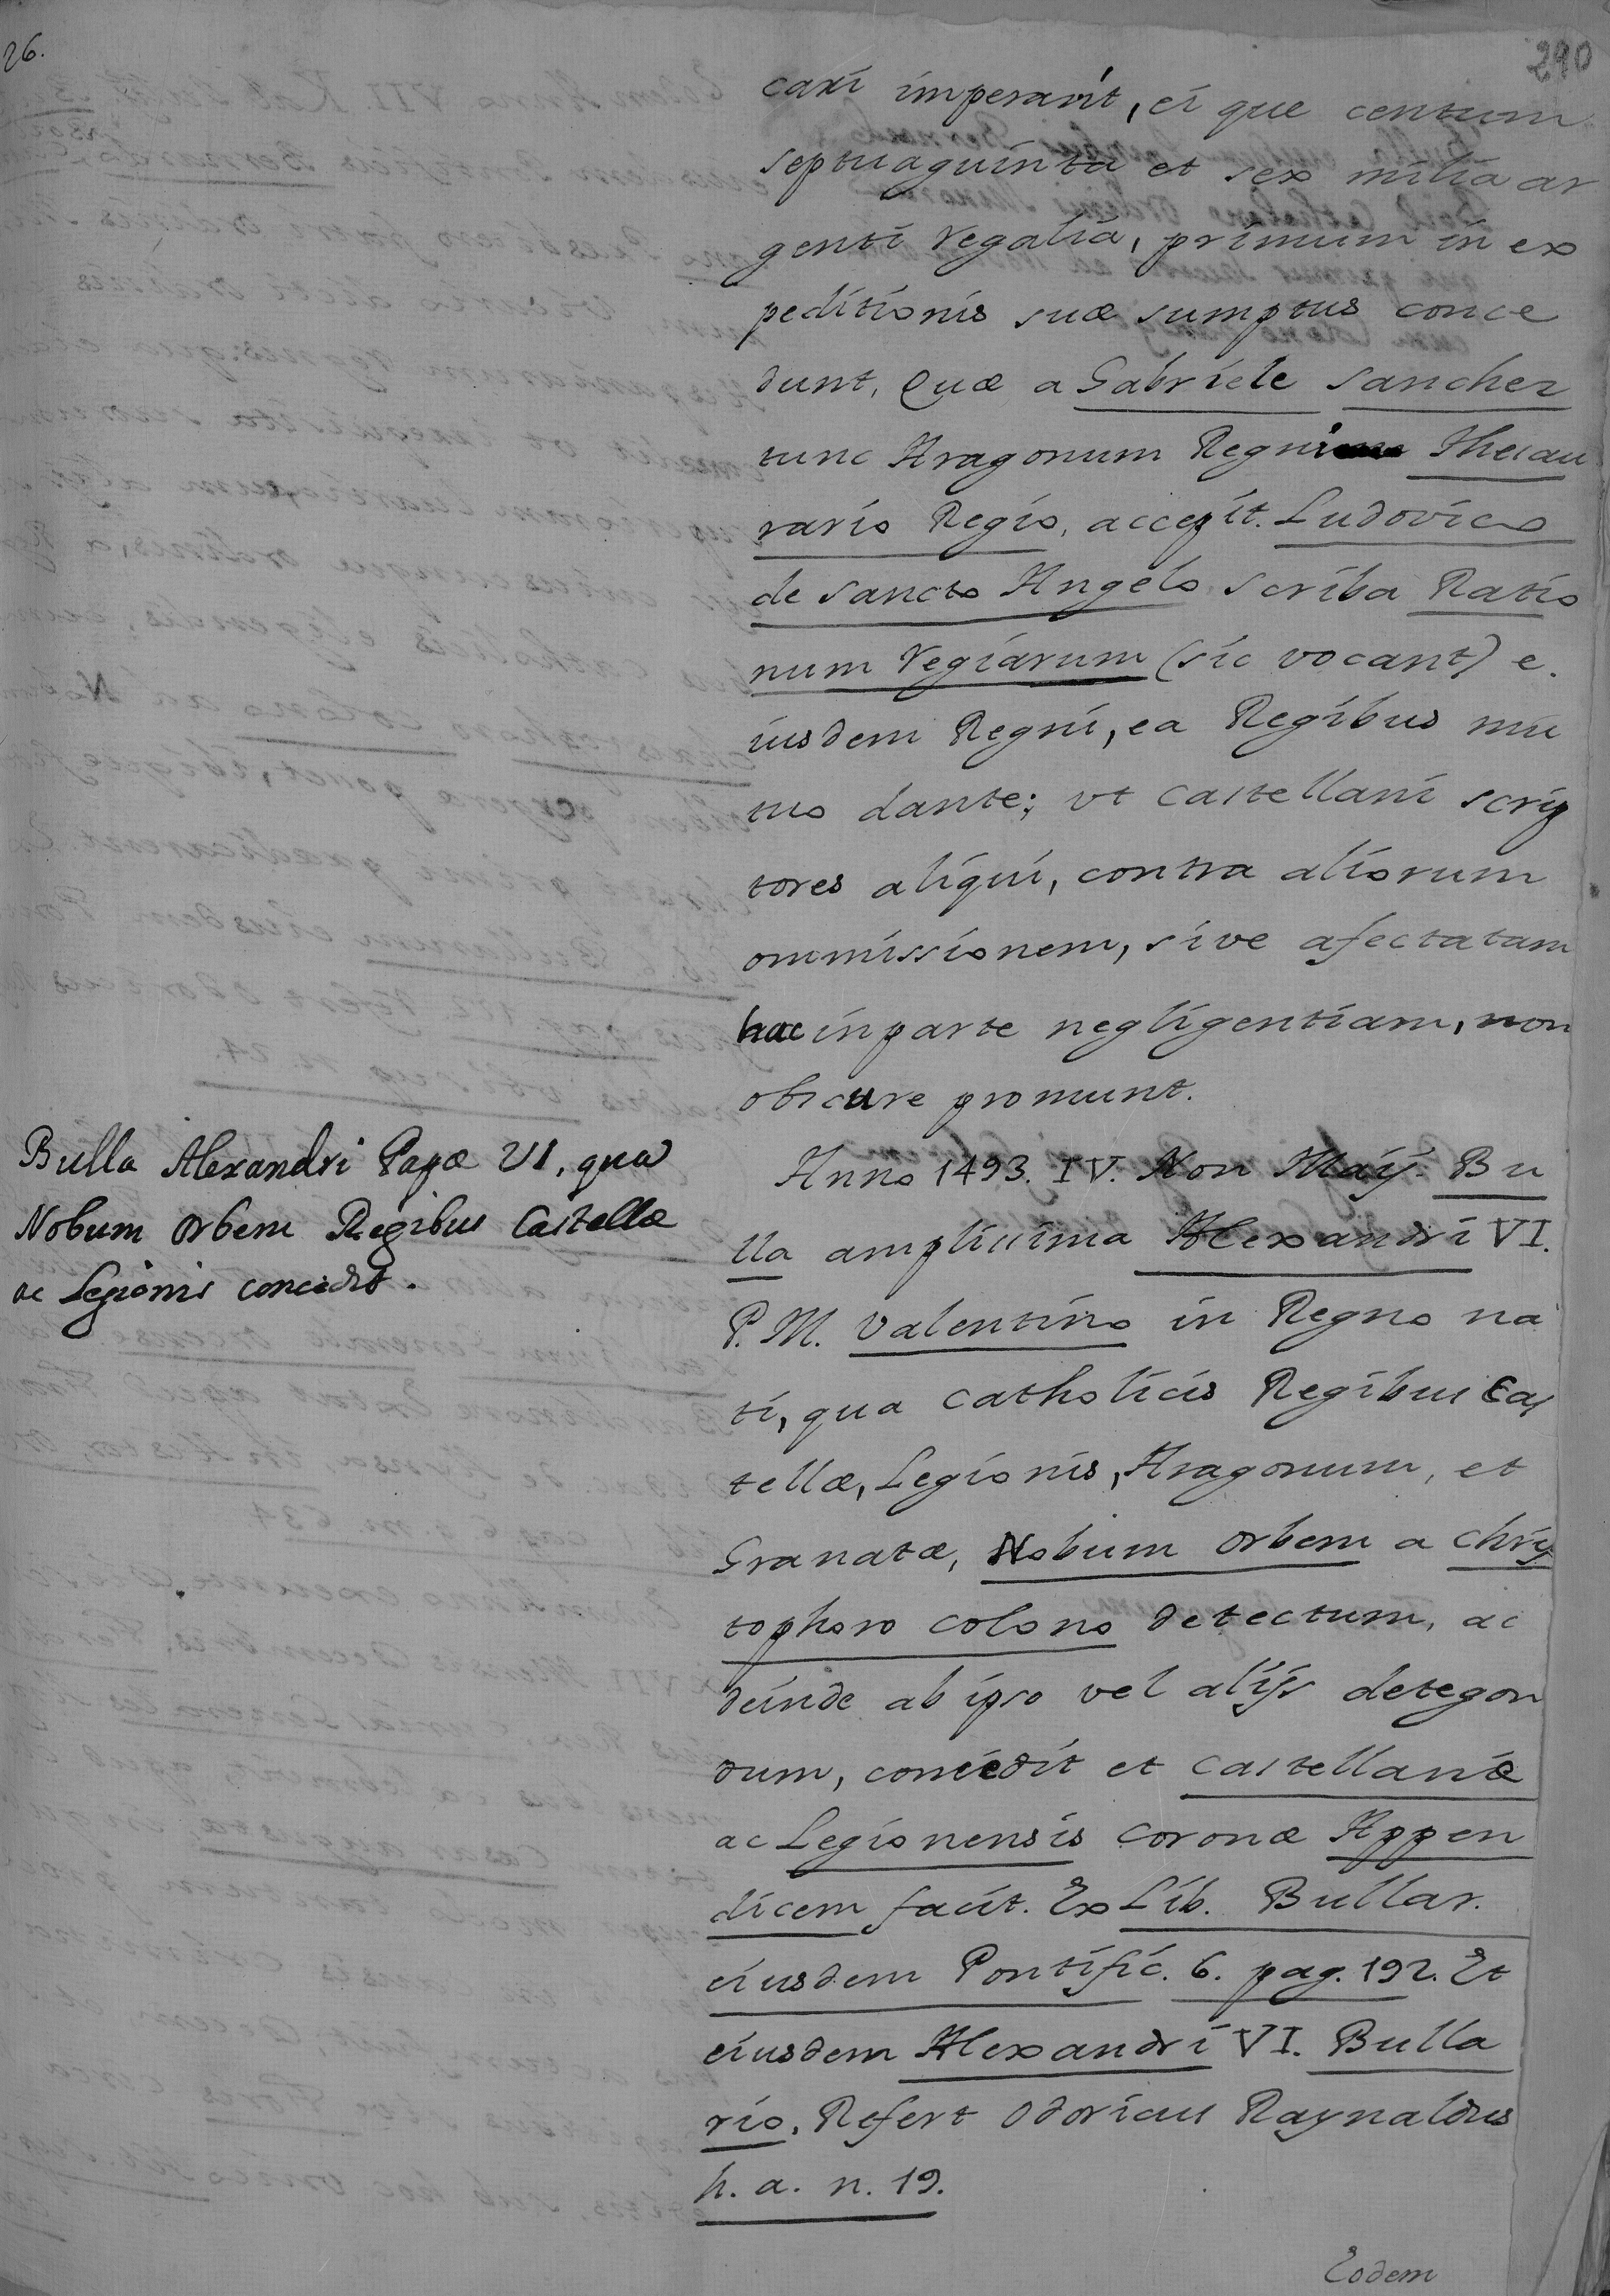 26.
290
cari imperarit, ei que centum
septuaguinta et sex milia ar
genti regalia, primum in ex
peditionis suæ sumptus conce
dunt, Quæ a Gabriele Sanchez
tunc Aragonum Regni Thesau
rario Regio, accepit. Ludovico
de Sancto Angelo scriba Ratio
num regiarum (sic vocant) e
iusdem Regni, ea Regibus mu
tuo dante; vt Castellani scrip
tores aliqui, contra aliorum
ommissionem, sive afectatam
hac in parte negligentiam, non
obscure promunt.
Bulla Alexandri Papæ VI, qua
Nobum Orbem Regibus Castellæ
ac Legionis concedit.
Anno 1493. IV. Non Maÿ. Bu
lla amplissima Alexandri VI.
P. M. Valentino in Regno na
ti, qua Catholicis Regibus Cas
tellæ, Legionis, Aragonum, et
Granatæ, Nobum Orbem a Chris
tophoro Colono detectum, ac
deinde ab ipso vel alijs detegen
dum, concedit et Castellanæ
ac Legionensis coronæ Appen
dicem facit. Ex Lib. Bullar.
eiusdem Pontific. 6. pag. 192. Et
eiusdem Alexandri VI. Bulla
rio. Refert Odoricus Raynaldus
h. a. n. 19.
Eodem